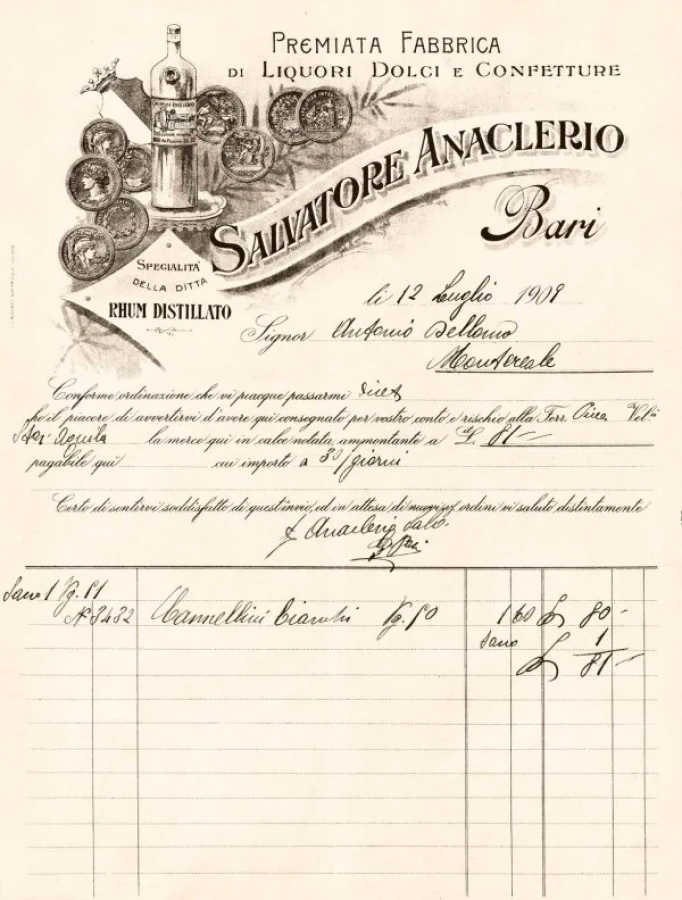 PREMIATA FABBRICA
DI LIQUORI DOLCI E CONFETTURE
SALVATORE ANACLERIO
Bari
SPECIALITA'
DELLA DITTA
RHUM DISTILLATO
li 12 Luglio 1909
Signor Antonio Dellomo
Montereale
Conforme ordinazione che vi piacque passarmi
ho il piacere di avvertirvi d'avere qui consegnato per vostro conto e rischio alla Ferr. Vel.à
Aquila la merce qui in calce notata, ammontante a L. 81
pagabile qui cui importo a 30/giorni
Certo di sentirvi soddisfatto di quest'invio, ed in attesa di nuovi vs/ ordini vi saluto distintamente
Anaclerio Salv.
Sacco 1 Kg. 51
N. 3432 Cannellini Bianchi Kg. 50 1 60 L 80
Sacco 1
L 81